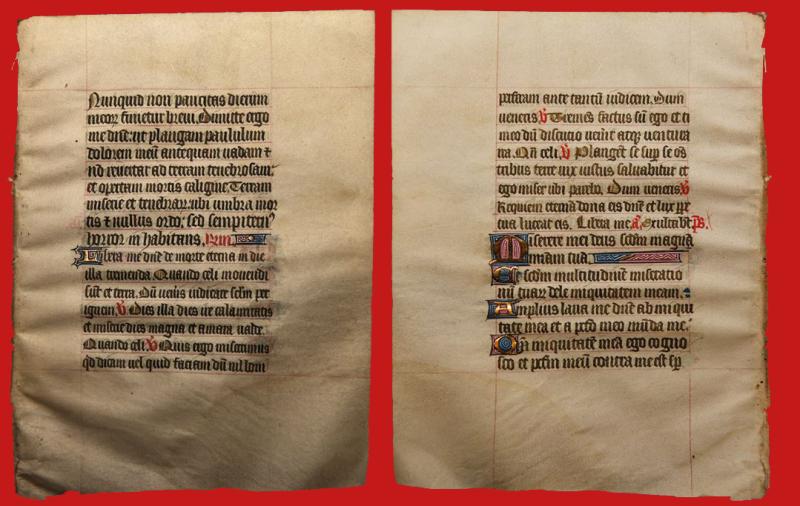 Nunquid non paucitas dierum
meoꝝ finietur breui. Dimitte ergo
me dn̄e: ut plangam paululum
dolorem meū antequam uadam ⁊
nō reuertar ad terram tenebrosam:
et opertam mortis caligine. Terram
miserie et tenebraꝝ: ubi umbra mor
tis ⁊ nullus ordo: sed sempitern᷒
horror inhabitans.
Libera me dn̄e de morte eterna in die
illa tremenda. Quando celi mouendi
sūt et terra. Dū ueneris iudicare sclm̄ per
ignem. ℣ Dies illa dies ire calamitatis
et miserie dies magna et amara ualde.
Quando celi. ℣ Quis ergo miserrimus
qd̄ dicam uel quid faciam dū nil boni
perferam ante tantū iudicem. Dum
ueneris ℣ Tremens factus sū ego et ti
meo dū discussio uen̄it atqꝫ uentura
ira. Qn̄ celi. ℣ Plangēt se sup̄ se oēs
tribus terre uix iustus saluabitur et
ego miser ubi parebo. Dum ueneris ℣
Requiem eternā dona eis dn̄e et lux ꝑpe
tua luceat eis. Libera me. a᷒. Exultabt̄. p̄s.
Miserere mei deus scdm̄ magnā
miām tuā.
Et scdm̄ multitudinē miseratio
nū tuaꝝ dele iniquitatem meam.
Amplius laua me dn̄e ab iniqui
tate mea et a pctō meo mūda me.
Qm̄ iniquitatē meā ego cogno
sco et pctm̄ meū contra me est sp̄.